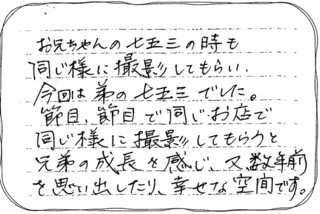 お兄ちゃんの七五三の時も
同じ様に撮影してもらい、
今回は弟の七五三でした。
節目、節目で同じお店で
同じ様に撮影してもらうと
兄弟の成長を感じ、又数年前
を思い出したり、幸せな空間です。